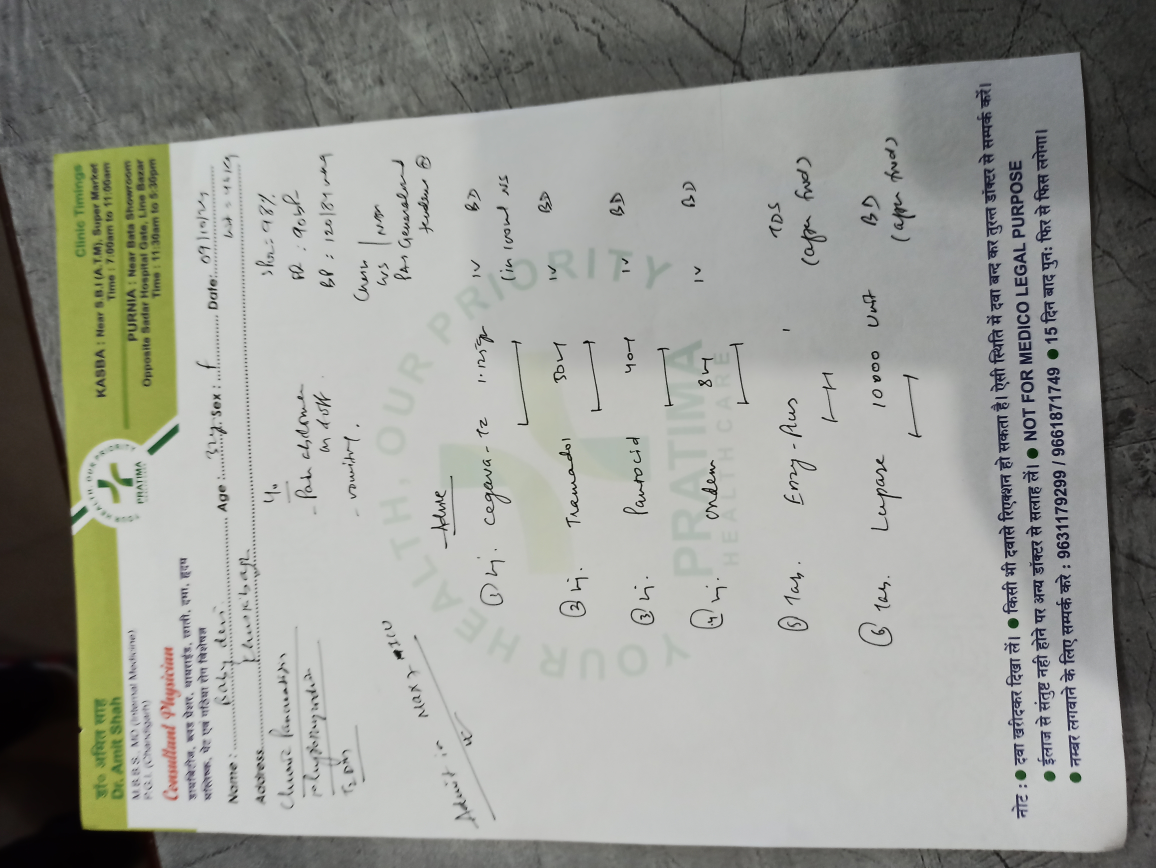 डा० अमित साह
Dr. Amit Shah
M.B.B.S., MD (Internal Medicine)
P.G.I. (Chandigarh)
Consultant Physician
डायबिटीज, ब्लड प्रेशर, थायराईड, छाती, दमा, हृदय
मस्तिष्क, पेट एवं गठिया रोग विशेषज्ञ
YOUR HEALTH, OUR PRIORITY
PRATIMA
Clinic Timings
KASBA : Near S.B.I (A.T.M), Super Market
Time : 7:00am to 11:00am
PURNIA : Near Bata Showroom
Opposite Sadar Hospital Gate, Line Bazar
Time : 11:30am to 5:30pm
Name : Baby devi Age : Sex : f Date: 09/10/
Address Khuskibagh
Chronic Pancreatitis
T2DM
c/o
- Pain abdomen
- vomiting.
SpO2 = 98%
PR : 90
BP : 120/84
Chest
CVS
P/A Generalised
Admit in
ICU
Advice
① Inj. 1.125 IV BD
(in 100ml NS
② Inj. Tramadol 50 IV BD
③ Inj. Pantocid 40 IV BD
④ Inj. Ondem 8 IV BD
⑤ Tab. Enzy-Plus TDS
(after food)
⑥ Tab. Lupase 10000 unit BD
(after food)
YOUR HEALTH, OUR PRIORITY
PRATIMA
HEALTH CARE
नोट : ● दवा खरीदकर दिखा लें। ● किसी भी दवासे रिएक्शन हो सकता है। ऐसी स्थिति में दवा बन्द कर तुरन्त डॉक्टर से सम्पर्क करें।
● ईलाज से संतुष्ट नही होने पर अन्य डॉक्टर से सलाह लें। ● NOT FOR MEDICO LEGAL PURPOSE
● नम्बर लगवाने के लिए सम्पर्क करे : 9631179299 / 9661871749 ● 15 दिन बाद पुन: फिर से फिस लगेगा।